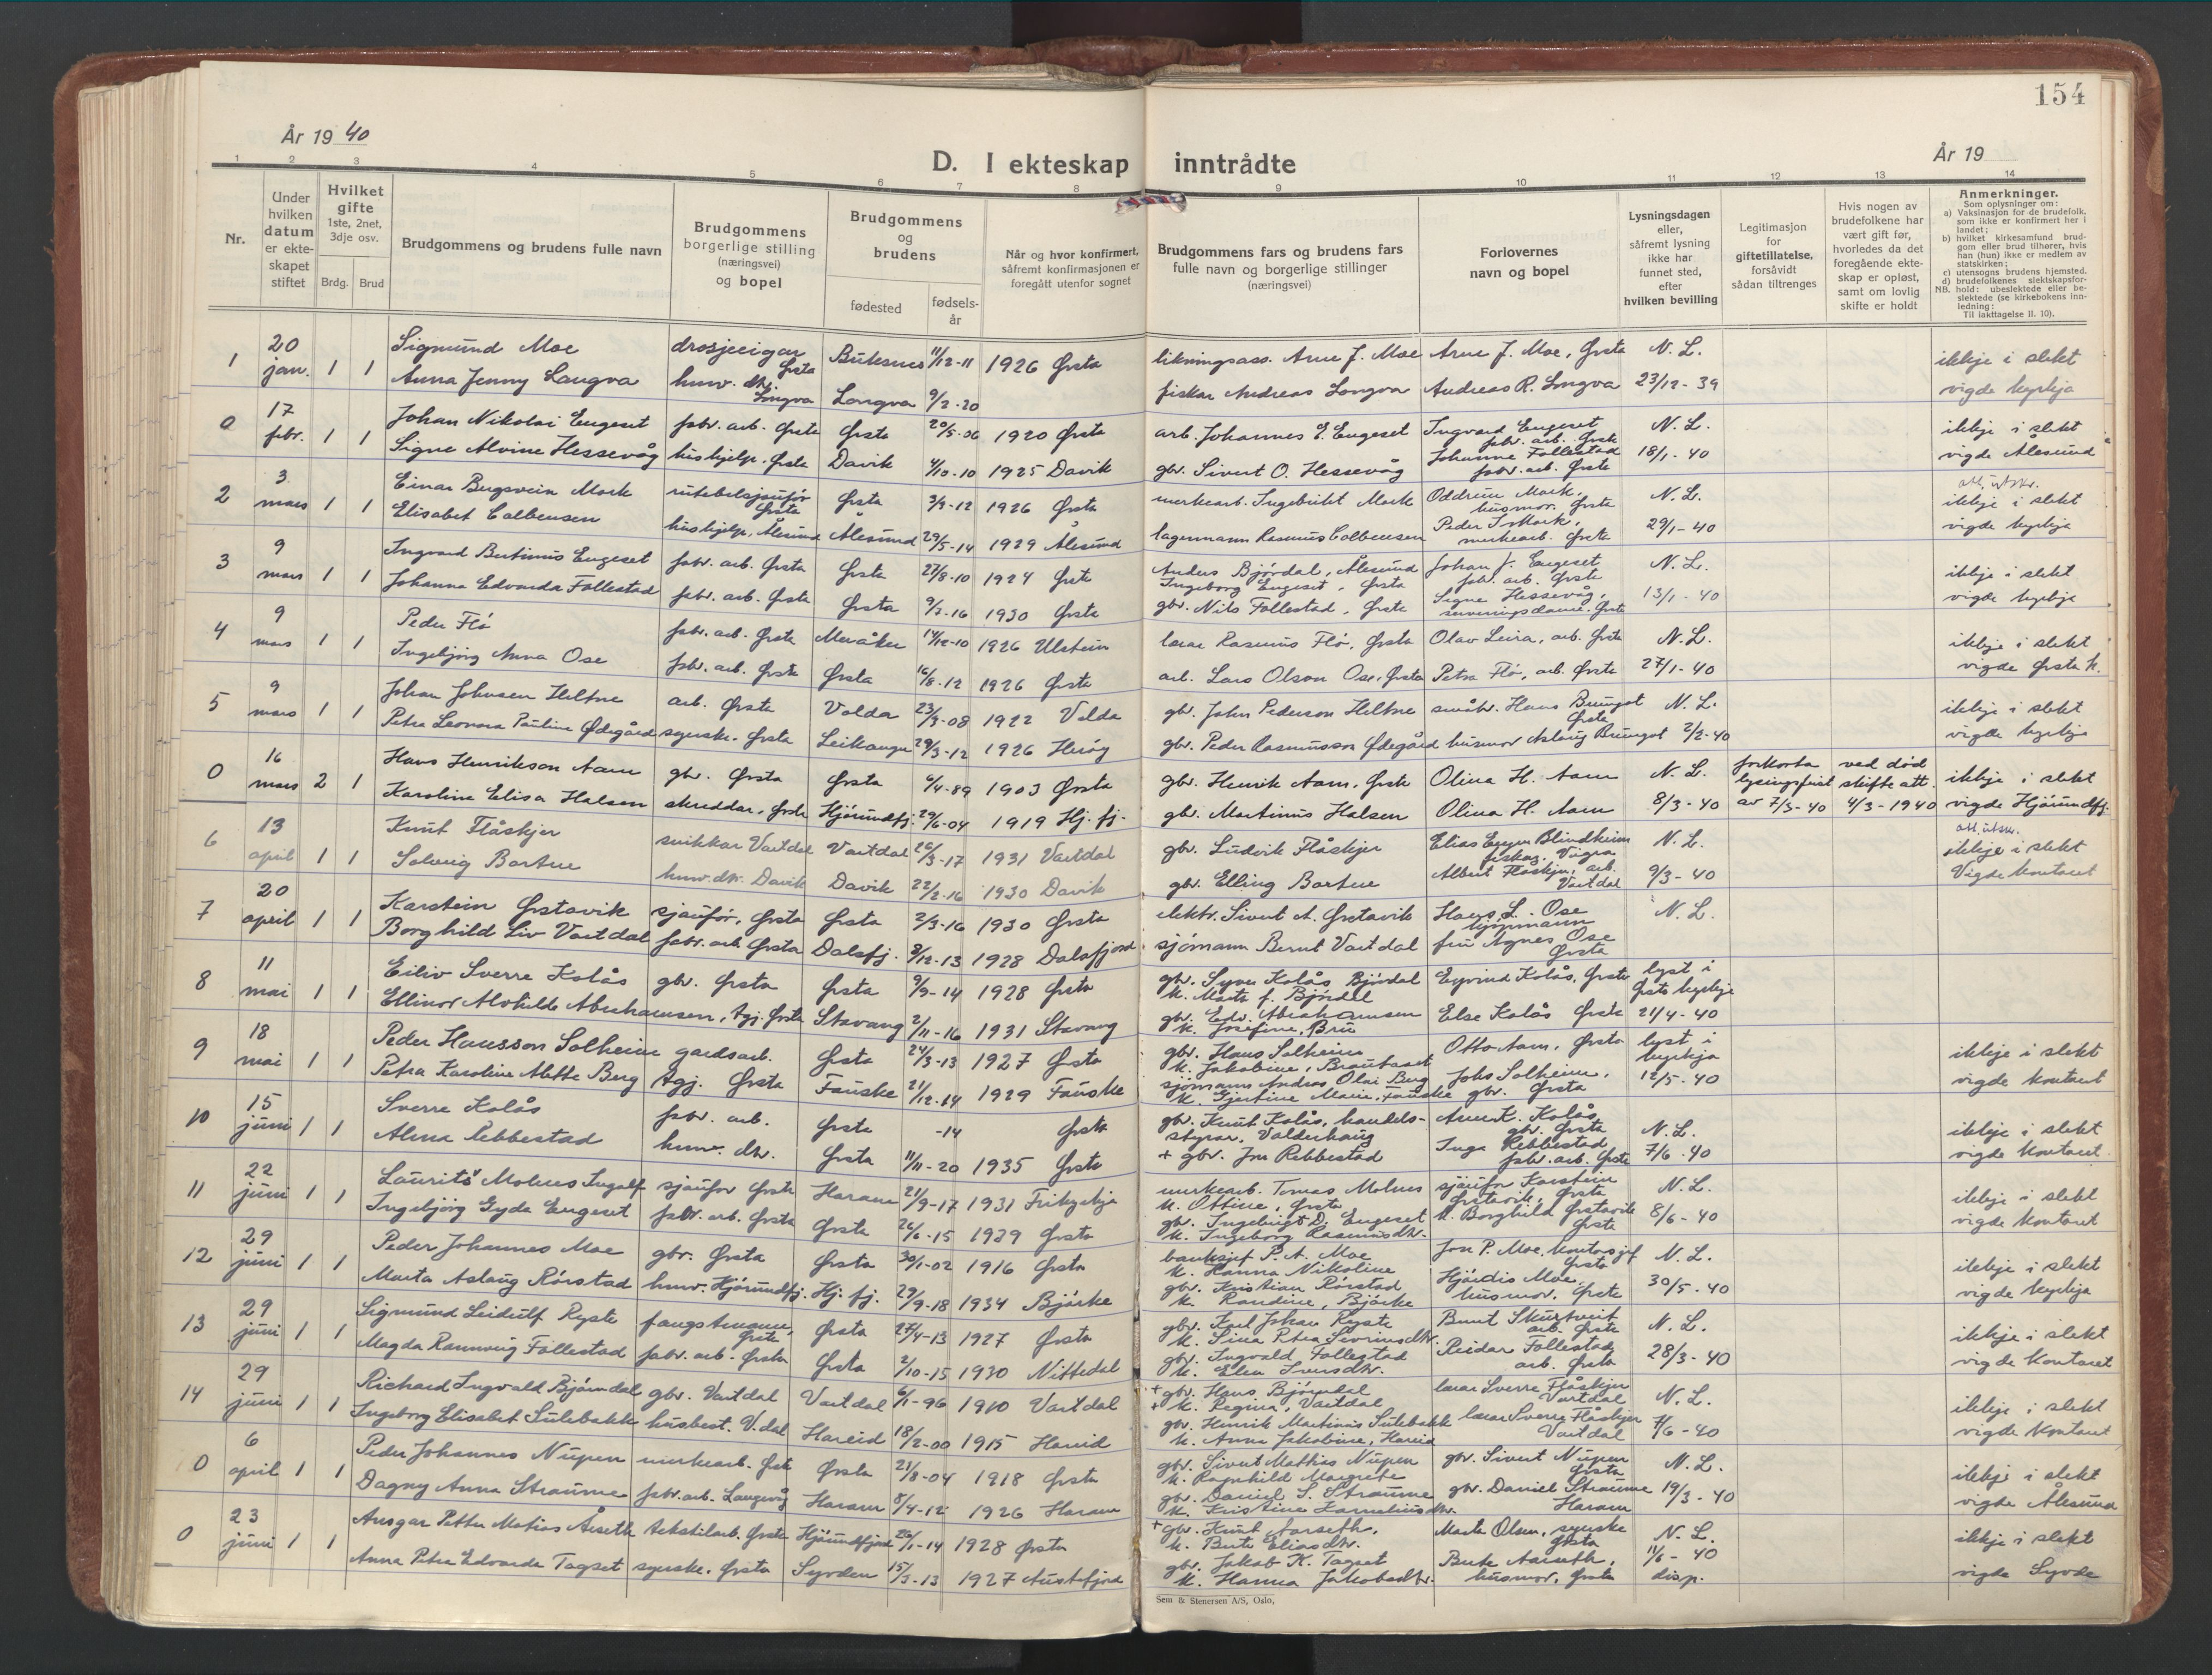 154
År 19 40
D. I ekteskap inntrådte
År 19
1 2 3 4 5 6 7 8 9 10 11 12 13 14
Nr.
Under hvilken datum er ekteskapet stiftet
Hvilket gifte 1ste, 2net, 3dje osv.
Brdg. Brud
Brudgommens og brudens fulle navn
Brudgommens borgerlige stilling (næringsvei) og bopel
Brudgommens og brudens
fødested
fødsels-år
Når og hvor konfirmert, såfremt konfirmasjonen er foregått utenfor sognet
Brudgommens fars og brudens fars fulle navn og borgerlige stillinger (næringsvei)
Forlovernes navn og bopel
Lysningsdagen eller, såfremt lysning ikke har funnet sted, efter hvilken bevilling
Legitimasjon for giftetillatelse, forsåvidt sådan tiltrenges
Hvis nogen av brudefolkene har vært gift før, hvorledes da det foregående ekteskap er opløst, samt om lovlig skifte er holdt
Anmerkninger.
Som oplysninger om:
a) Vaksinasjon for de brudefolk, som ikke er konfirmert her i landet;
b) hvilket kirkesamfund brudgom eller brud tilhører, hvis han (hun) ikke er medlem av statskirken;
c) utensogns brudens hjemsted.
d) brudefolkenes slektskapsforhold: ubeslektede eller beslektede (se kirkebokens innledning:
NB. Til iakttagelse II. 10).
1 20 jan. 1 1 Sigmund Moe drosjeeigar Ørsta Buksnes 11/12-11 1926 Ørsta likningsass. Arne J. Moe Arne J. Moe, Ørsta N. L. ikkje i slekt
Anna Jenny Longva husv. dtr. Longva Longva 9/2-20 fiskar Andreas Longva Andreas R. Longva 23/12-39 vigde kyrkja
0 17 febr. 1 1 Johan Nikolai Engeset fabr. arb. Ørsta Ørsta 20/5-06 1920 Ørsta arb. Johannes E. Engeset Ingvard Engeset fabr. arb. Ørsta N. L. ikkje i slekt
Signe Alvine Hessevåg hushjelp. Ørsta Davik 4/10-10 1925 Davik gbr. Sivert O. Hessevåg Johanne Follestad fabr. arb. Ørsta 18/1-40 vigde Ålesund
2 3 mars 1 1 Einar Bugsvein Mork rutebilsjåufør Ørsta Ørsta 3/3-12 1926 Ørsta merkearb. Ingebrikt Mork Oddrun Mork, husmor. Ørsta N. L. att. utskr. ikkje i slekt
Elisabet Colbensen hushjelp, Ålesund Ålesund 29/5-14 1929 Ålesund lagermann Rasmus Colbensen Peder I. Mork, merkearb. Ørsta 29/1-40 vigde kyrkja
3 9 mars 1 1 Ingvard Bertinus Engeset fabr. arb. Ørsta Ørsta 27/8-10 1924 Ørsta Anders Bjørdal, Ålesund Ingeborg Engeset, Ørsta Johan J. Engeset fabr. arb. Ørsta N. L. ikkje i slekt
Johanna Edvarda Follestad fabr. arb. Ørsta Ørsta 9/7-16 1930 Ørsta gbr. Nils Follestad, Ørsta Signe Hessevåg, serveringsdame. Ørsta 13/1-40 vigde kyrkja
4 9 mars 1 1 Peder Flø fabr. arb. Ørsta Meråker 14/12-10 1926 Ulstein lærar Rasmus Flø, Ørsta Olav Leira, arb. Ørsta N. L. ikkje i slekt
Ingebjørg Anna Ose fabr. arb. Ørsta Ørsta 16/8-12 1926 Ørsta arb. Lars Olson Ose, Ørsta Petra Flø, arb. Ørsta 27/1-40 vigde Ørsta k.
5 9 mars 1 1 Johan Johnsen Heltne arb. Ørsta Volda 23/3-08 1922 Volda gbr. John Pederson Heltne småbr. Hans Brungot Ørsta N. L. ikkje i slekt
Petra Leonora Pauline Ødegård syerske. Ørsta Leikanger 29/3-12 1926 Herøy gbr. Peder Rasmusson Ødegård husmor Aslaug Brungot 2/2-40 vigde kyrkja
0 16 mars 2 1 Hans Henrikson Aam gbr. Ørsta Ørsta 6/4-89 1903 Ørsta gbr. Henrik Aam, Ørsta Olina H. Aam N. L. forkorta lysingsfrist ved død skifte att. ikkje i slekt
Karoline Elisa Halsen skreddar, Ørsta Hjørundfj. 29/6-04 1919 Hj. fj. gbr. Martinus Halsen Olina H. Aam 8/3-40 av 7/3-40 4/3-1940 vigde Hjørundfj.
6 13 april 1 1 Knut Flåskjer snikkar Vartdal Vartdal 26/3-17 1931 Vartdal gbr. Ludvik Flåskjer Elias Blindheim fiskar, Vigra N. L. att. utskr. ikkje i slekt
Solveig Bortne husv. dtr. Davik Davik 22/2-16 1930 Davik gbr. Elling Bortne Albert Flåskjer, arb. Vartdal 9/3-40 Vigde kontoret
7 20 april 1 1 Karstein Ørstavik sjåufør, Ørsta Ørsta 2/3-16 1930 Ørsta elektr. Sivert A. Ørstavik Hans L. Ose N. L.
Borghild Liv Vartdal fabr. arb. Ørsta Dalsfj. 3/12-13 1928 Dalsfjord sjømann Bernt Vartdal fru Agnes Ose Ørsta
8 11 mai 1 1 Eiliv Sverre Kolås gbr. Ørsta Ørsta 9/9-14 1928 Ørsta gbr. Syver Kolås Bjørdal k. Marta f. Bjørdal Eyvind Kolås, Ørsta lyst i Ørsta kyrkja
Ellinor Alvhilde Abrahamsen, tgj. Ørsta Stavang 2/11-16 1931 Stavang gbr. Edv. Abrahamsen k. Josefine, Bru Else Kolås Ørsta 21/4-40
9 18 mai 1 1 Peder Hansson Solheim gardsarb. Ørsta 24/3-13 1927 Ørsta gbr. Hans Solheim k. Jakobine, Brautaset Otto Aam, Ørsta lyst i kyrkja ikkje i slekt
Petra Karoline Alette Berg tgj. Ørsta Fauske 21/12-14 1929 Fauske sjømann Andreas Olai Berg k. Gjertine Marie, Fauske Johs Solheim, gbr. Ørsta 12/5-40 vigde kontoret
10 15 juni 1 1 Sverre Kolås fabr. arb. Ørsta -14 Ørsta gbr. Knut Kolås, handels-styrar, Valderhaug gbr. Ørsta N. L. ikkje i slekt
Alma Rebbestad husv. dtr. Ørsta 11/11-20 1935 Ørsta + gbr. Jon Rebbestad Inga Rebbestad fabr. arb. Ørsta 7/6-40 vigde kontoret
11 22 juni 1 1 Laurits Molnes Ingolf sjåufør Ørsta Haram 21/9-17 1931 Frikyrkja merkearb. Tomas Molnes k. Ottine, Ørsta sjåufør Karstein Ørstavik, Ørsta N. L. ikkje i slekt
Ingebjørg Gyda Engeset fabr. arb. Ørsta Ørsta 26/6-15 1929 Ørsta gbr. Ingebrigt D. Engeset k. Ingeborg Rasmusdtr. k. Borghild Ørstavik Ørsta 8/6-40 vigde kontoret
12 29 juni 1 1 Peder Johannes Moe gbr. Ørsta Ørsta 30/1-02 1916 Ørsta banksjef P. A. Moe k. Hanna Nikoline Jon P. Moe, kontorsjef Ørsta N. L. ikkje i slekt
Marta Aslaug Rørstad husv. Hjørundfj. Hj. fj. 29/9-18 1934 Bjørke gbr. Kristian Rørstad k. Randine, Bjørke Hjørdis Moe, husmor, Ørsta 30/5-40 vigde kyrkja
13 29 juni 1 1 Sigmund Leidulf Ryste fangstmann, Ørsta Ørsta 27/4-13 1927 Ørsta gbr. Karl Johan Ryste k. Sina Petra Severinsdtr. Bernt Skurtveit arb. Ørsta N. L. ikkje i slekt
Magda Rannveig Follestad fabr. arb. Ørsta Ørsta 2/10-15 1930 Nittedal gbr. Ingvald Follestad k. Elen Iversdtr. Reidar Follestad arb. Ørsta 28/3-40 vigde kontoret
14 29 juni 1 1 Richard Ingvald Bjørndal gbr. Vartdal Vartdal 6/1-96 1910 Vartdal + gbr. Hans Bjørndal + k. Regina, Vartdal lærar Sverre Flåskjer Vartdal N. L. ikkje i slekt
Ingeborg Elisabet Sulebakk husbest. V.dal Hareid 18/2-00 1915 Hareid gbr. Henrik Martinus Sulebakk k. Anna Jakobine, Hareid lærar Sverre Flåskjer Vartdal 7/6-40 vigde kontoret
0 6 april 1 1 Peder Johannes Nupen merkearb. Ørsta Ørsta 21/8-04 1918 Ørsta gbr. Sivert Mathias Nupen k. Ragnhild Margrete gbr. Sivert Nupen Ørsta N. L. ikkje i slekt
Dagny Anna Straume fabr. arb. Langevåg Haram 8/4-12 1926 Haram gbr. Daniel S. Straume k. Kristine Korneliusdtr. gbr. Daniel Straume Haram 19/3-40 vigde Ålesund
0 23 juni 1 1 Ansgar Petter Matias Årseth tekstilarb. Ørsta Hjørundfjord 26/1-14 1928 Ørsta + gbr. Knut Aarseth, k. Berte Eliasdtr. Marta Olsen, syerske Ørsta N. L. ikkje i slekt
Anna Petra Edvarda Tagset syerske. Ørsta Syvden 15/3-13 1927 Austefjord gbr. Jakob K. Tagset k. Hanna Jakobsdtr. Berte Aarseth, husmor, Ørsta 11/6-40 disp. vigde Syvde
Sem & Stenersen A/S, Oslo,